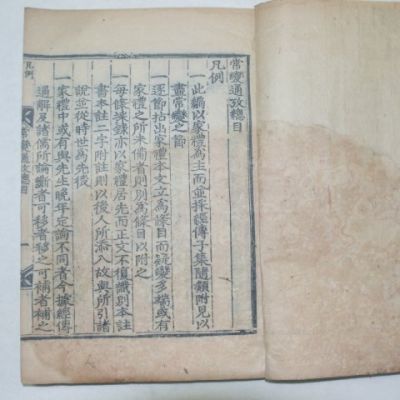 常變通攷總目
凡例
一此編以家禮爲主而並採經傳子集隨類附見以
盡常變之節
一逐節拈出家禮本文立爲條目而疑變多端或有
家禮之所未備者則別爲條目以附之
一每條採錄亦以家禮居先而正文不復識別本註
書本註二字附註則以後人所添入故與所引諸
說並從時世爲先後
一家禮中或有與先生晩年定論不同者今據經傳
通解及諸儒所論斷者可移者移之可補者補之
凡例
常變通攷總目